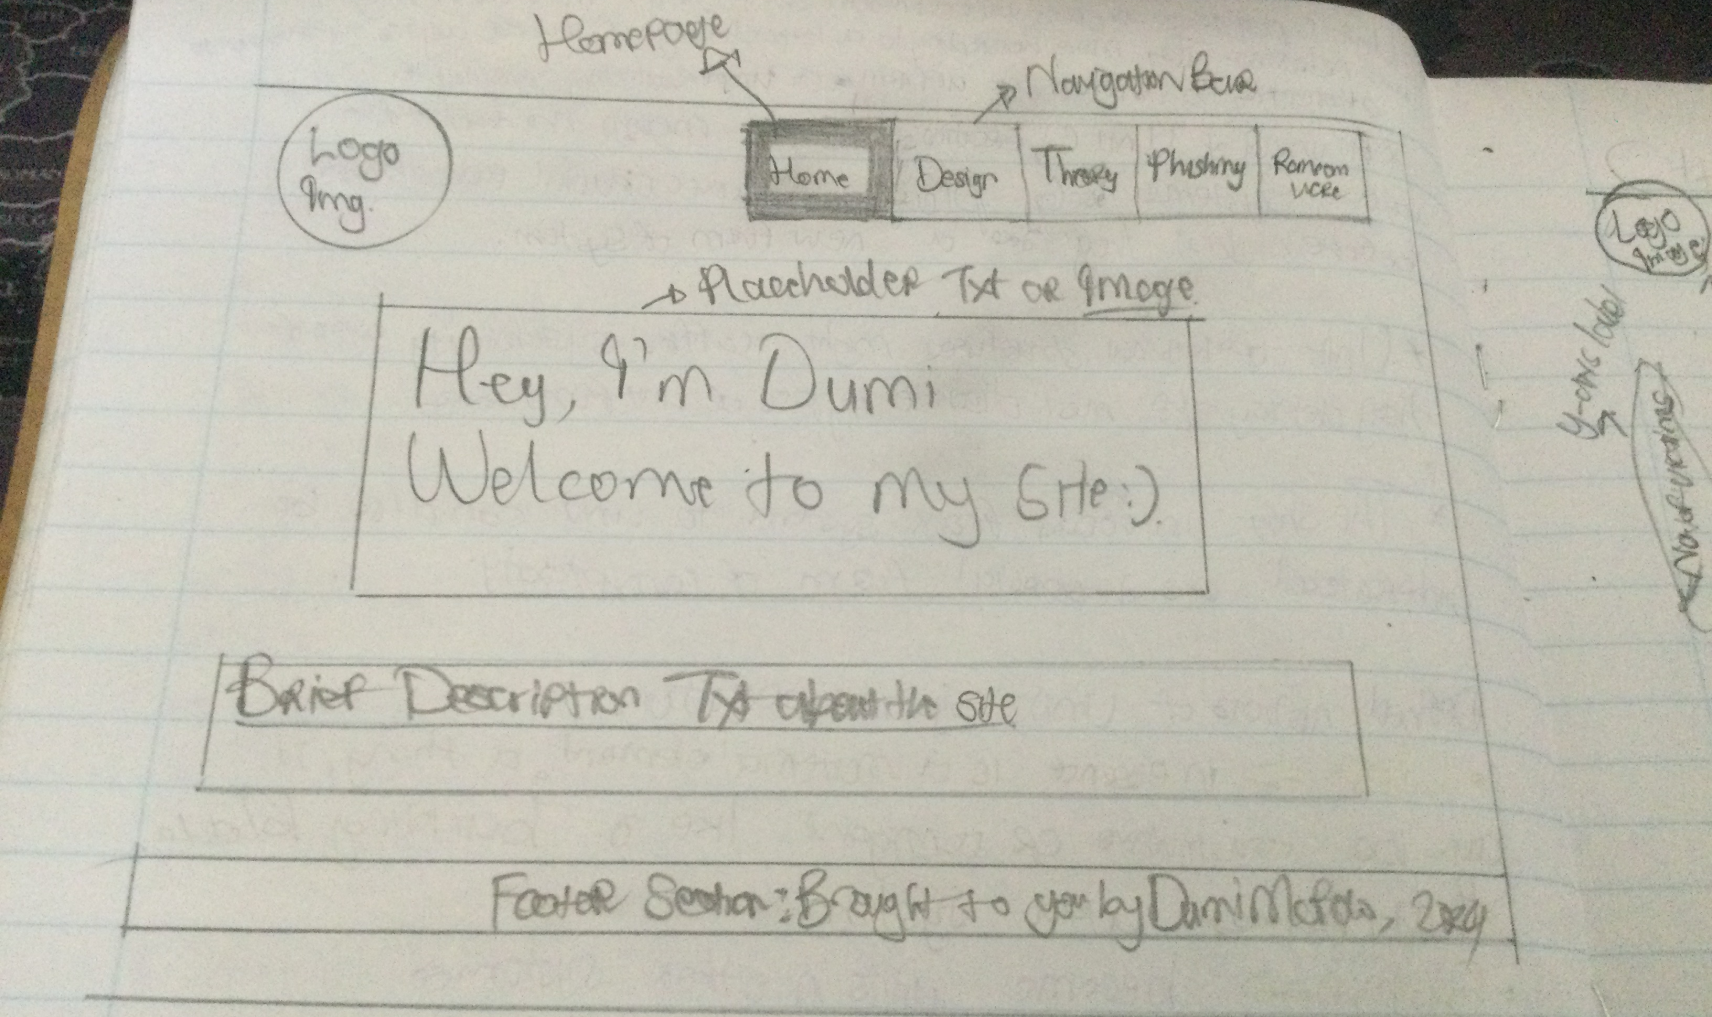 Homepage
Navigation Bar
Logo
Img.
Home
Design
Theory
Phishing
Placeholder Txt OR Image
Hey, I'm Dumi
Welcome to my Site:).
Brief Description Txt about the site
Footer Section: Brought to you by Dumi 2024
Logo
Image
Y-axis